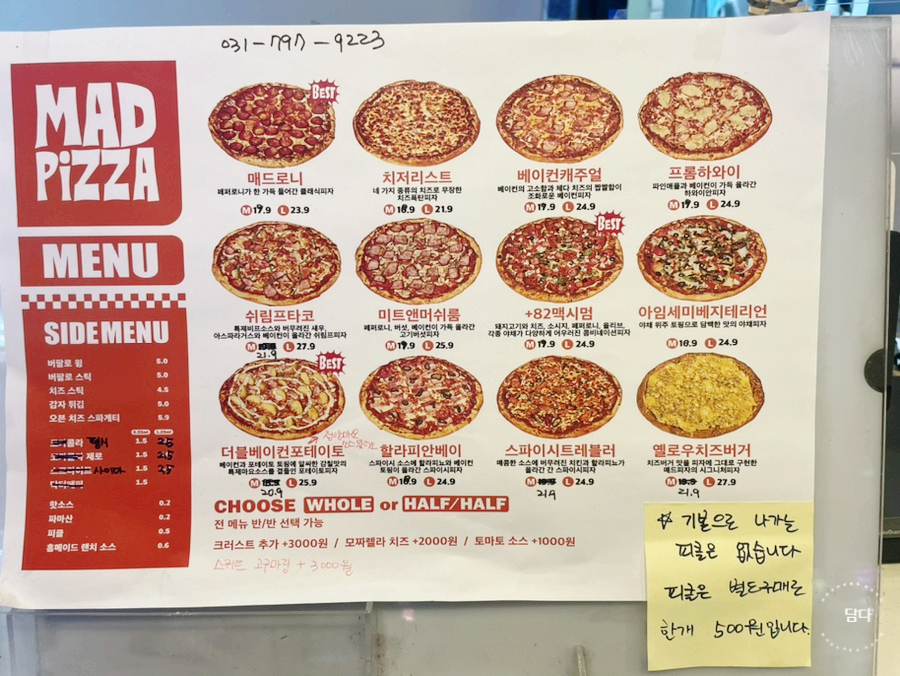 031-797-9223
MAD
PiZZA
MENU
SIDE MENU
버팔로 윙 5.0
버팔로 스틱 5.0
치즈 스틱 4.5
감자 튀김 5.0
오븐 치즈 스파게티 5.9
콜라 펩시 1.5 2.5
제로 1.5 2.5
사이다 1.5 2.5
1.5
핫소스 0.2
파마산 0.2
피클 0.5
홈메이드 랜치 소스 0.6
BEST
매드로니
페퍼로니가 한 가득 들어간 클래식피자
M 19.9 L 23.9
치저리스트
네 가지 종류의 치즈로 무장한
치즈폭탄피자
M L 21.9
베이컨캐주얼
베이컨의 고소함과 체다 치즈의 짭짤함이
조화로운 베이컨피자
M 19.9 L 24.9
프롬하와이
파인애플과 베이컨이 가득 올라간
하와이안피자
M 19.9 L 24.9
쉬림프타코
특제비프소스와 버무려진 새우,
아스파라거스와 베이컨이 올라간 쉬림프피자
M L 27.9
21.9
미트앤머쉬룸
페퍼로니, 버섯, 베이컨이 가득 올라간
고기버섯피자
M 19.9 L 25.9
BEST
+82맥시멈
돼지고기와 치즈, 소시지, 페퍼로니, 올리브,
각종 야채가 다양하게 어우러진 콤비네이션피자
M 19.9 L 24.9
아임세미베지테리언
야채 위주 토핑으로 담백한 맛의 야채피자
M L 24.9
BEST
더블베이컨포테이토
베이컨과 포테이토 토핑에 알싸한 감칠맛의
특제마요소스를 곁들인 포테이토피자
M L 25.9
20.9
할라피안베이
스파이시 소스에 할라피뇨와 베이컨
토핑이 올라간 스파이시피자
M L 24.9
스파이시트레블러
매콤한 소스에 버무려진 치킨과 할라피뇨가
올라간 스파이시피자
M L 24.9
21.9
옐로우치즈버거
치즈버거 맛을 피자에 그대로 구현한
매드피자의 시그니처피자
M L 24.9
21.9
CHOOSE WHOLE or HALF/HALF
전 메뉴 반/반 선택 가능
크러스트 추가 +3000원 / 모짜렐라 치즈 +2000원 / 토마토 소스 +1000원
고구마링 + 3,000원
※ 기본으로 나가는
피클은 없습니다
피클은 별도구매로
한개 500원입니다.
담다